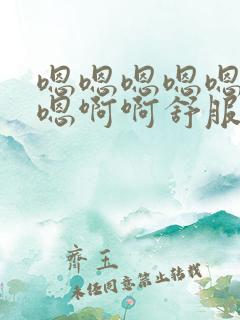 嗯嗯嗯嗯嗯
嗯啊啊舒服
齐玉
未经同意禁止转载